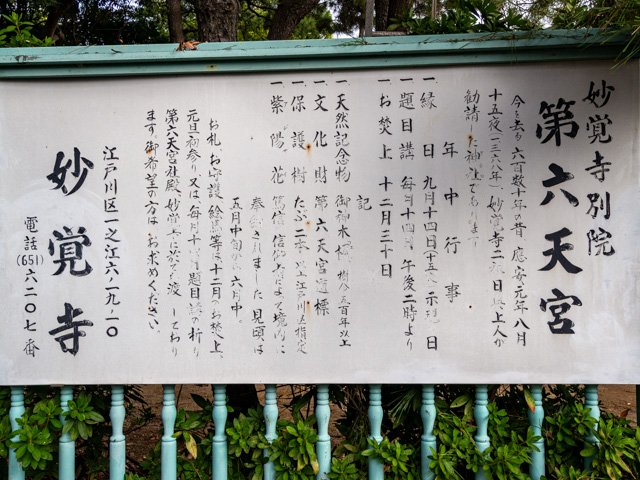 妙覚寺別院
第六天宮
今を去る六百数十年の昔 應安元年八月
十五夜(一三六八年)、妙覚寺二祖日 上人が
勧請した神社であります
年中行事
一縁日 九月十四日(十五 示現 日
一題目講 毎月十四日 午後二時より
一お焚上 十二月三十日
記
一天然記念物 御神木 樹令五百年以上
一文化財 第六天宮道標
一保護樹 たぶ二 江戸川区指定
一紫陽花 篤信 信仰 によって境内に
奉納されました 見頃は
五月中旬から六月中。
お札、お守護 絵馬等は十二月 お焚上、
元旦初参り又は、毎月十 題目講 祈り
第六天宮社殿、妙覚寺に於て渡 しており
ます。御希望の方は お求めください。
江戸川区一之江六ノ一九ノ一〇
妙覚寺
電話(651)六二〇七番